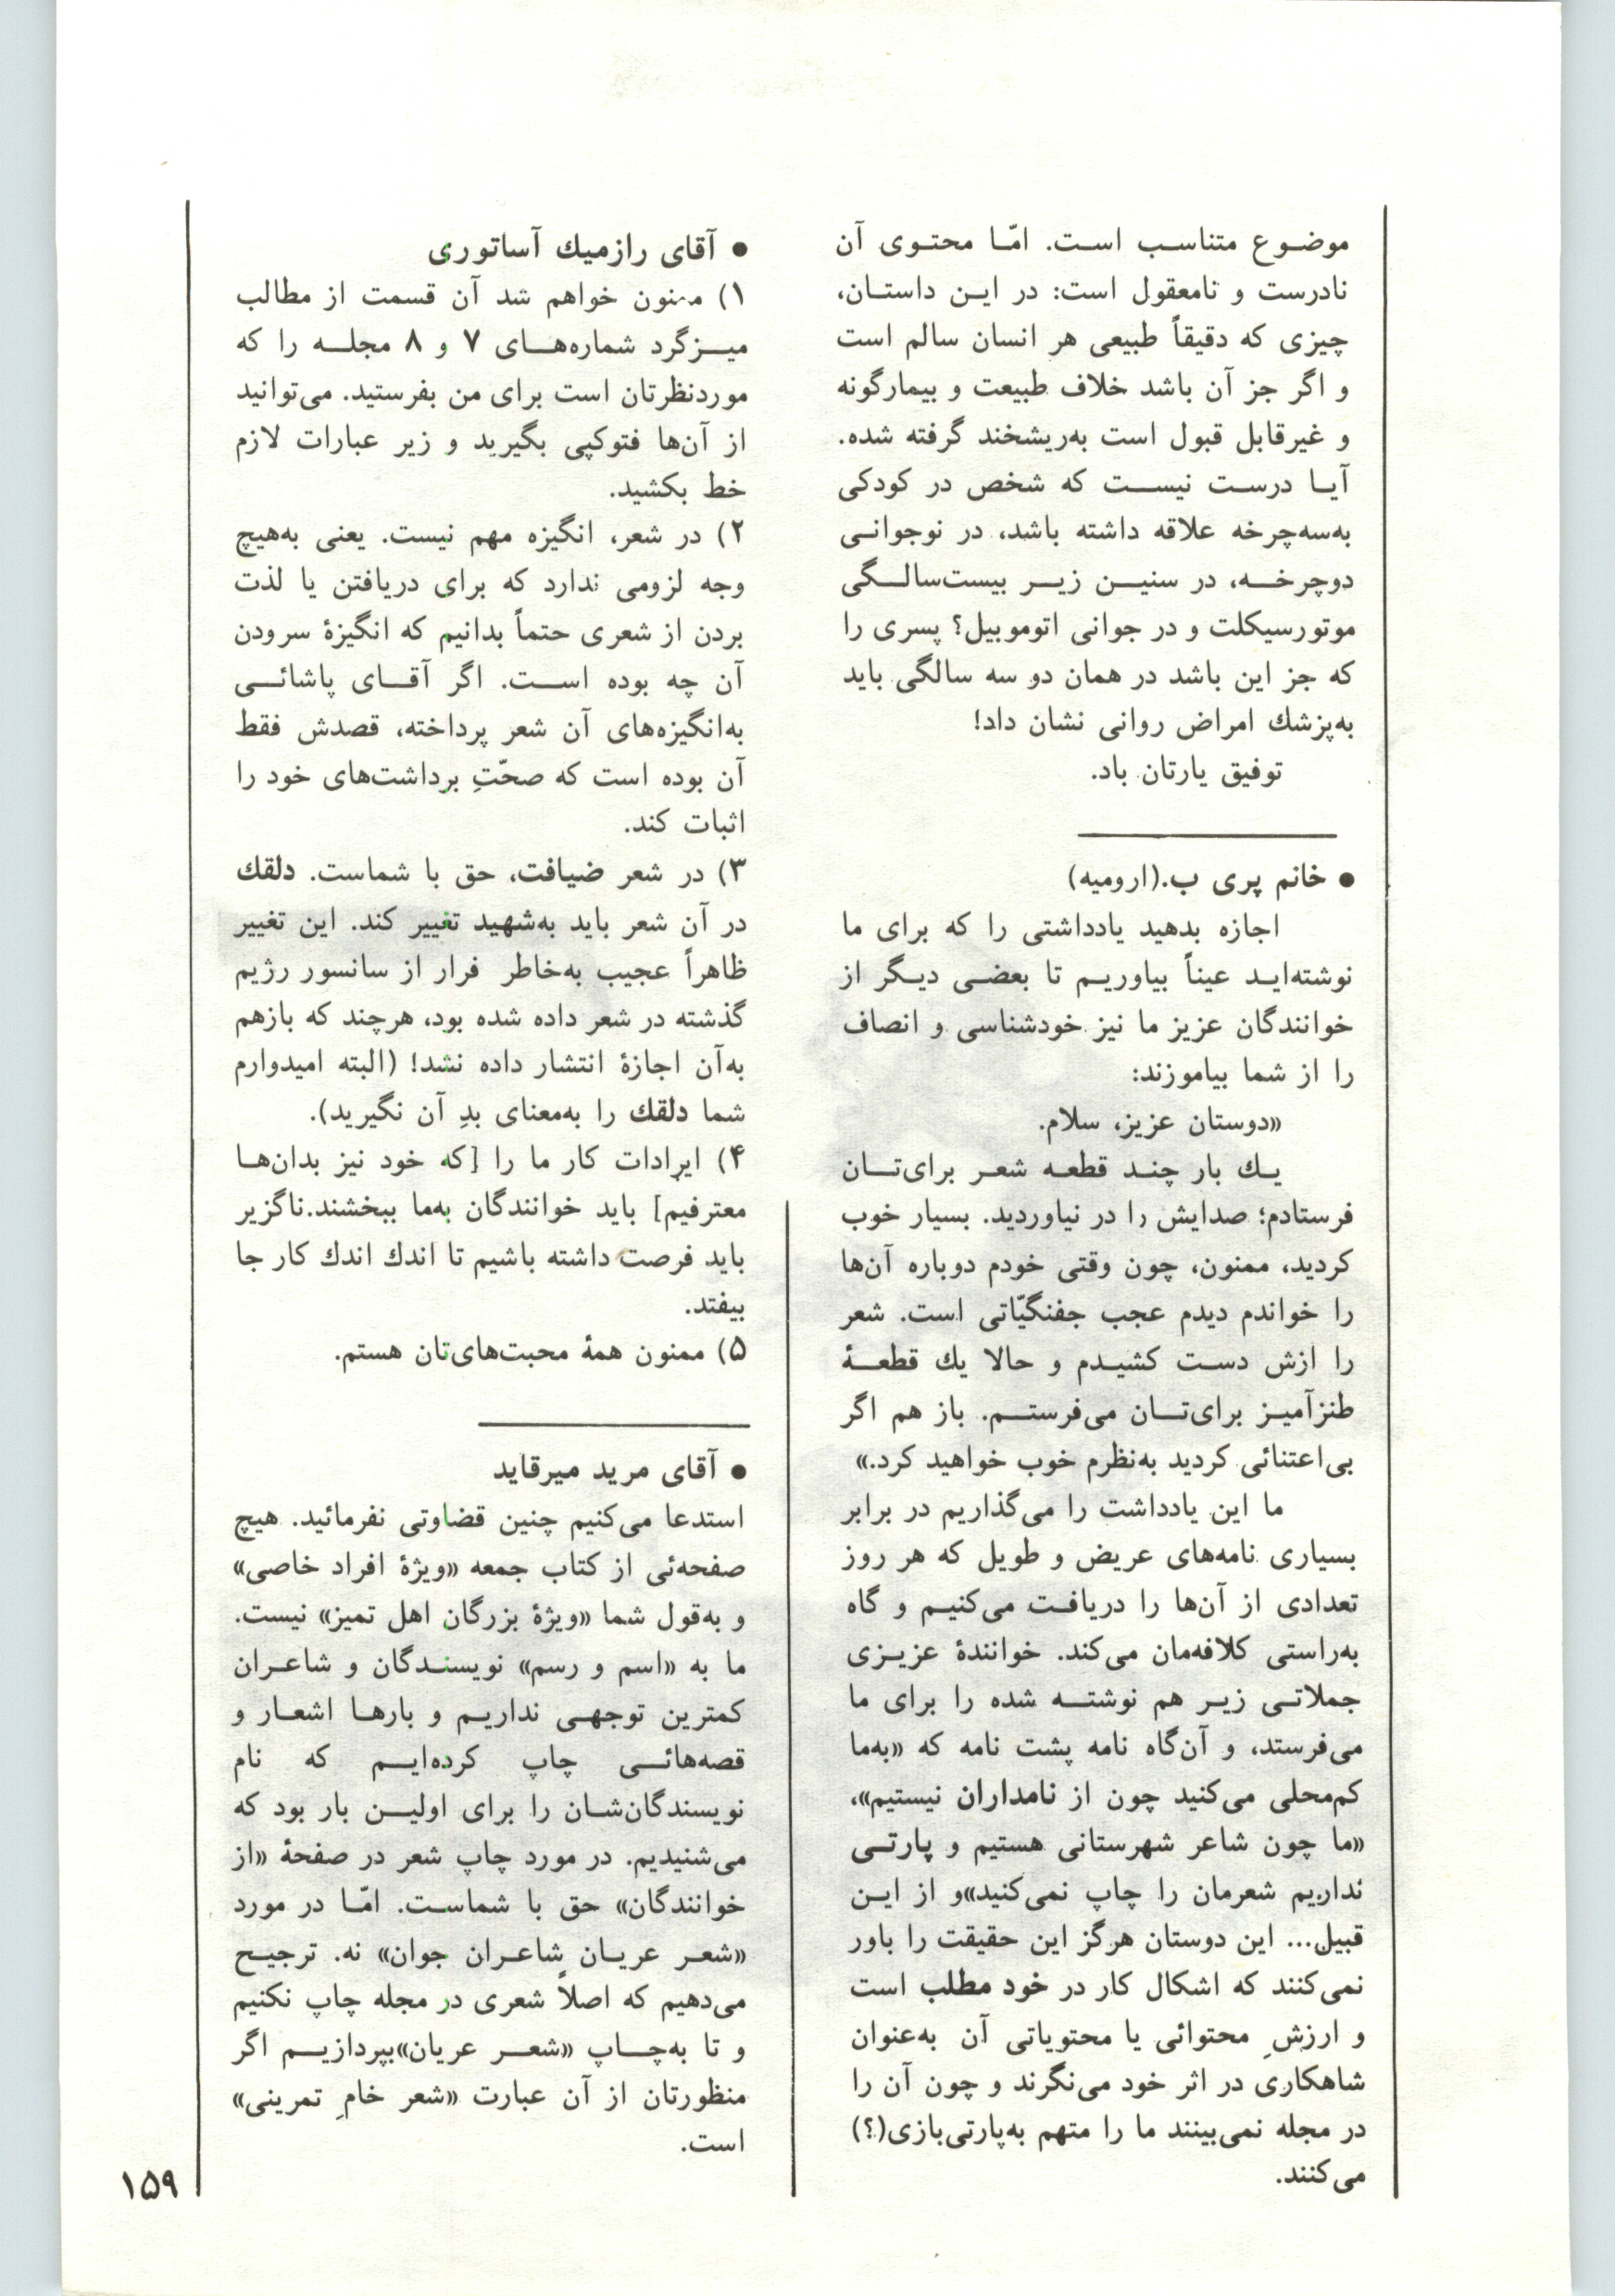 موضوع متناسب است. امّا محتوی آن
نادرست و نامعقول است: در این داستان،
چیزی که دقیقاً طبیعی هر انسان سالم است
و اگر جز آن باشد خلاف طبیعت و بیمارگونه
و غیرقابل قبول است به‌ریشخند گرفته شده.
آیا درست نیست که شخص در کودکی
به‌سه‌چرخه علاقه داشته باشد، در نوجوانی
دوچرخه، در سنین زیر بیست‌سالگی
موتورسیکلت و در جوانی اتوموبیل؟ پسری را
که جز این باشد در همان دو سه سالگی باید
به‌پزشك امراض روانی نشان داد!
توفیق یارتان باد.
● خانم پری ب.(ارومیه)
اجازه بدهید یادداشتی را که برای ما
نوشته‌اید عیناً بیاوریم تا بعضی دیگر از
خوانندگان عزیز ما نیز خودشناسی و انصاف
را از شما بیاموزند:
«دوستان عزیز، سلام.
یك بار چند قطعه شعر برای‌تان
فرستادم؛ صدایش را در نیاوردید. بسیار خوب
کردید، ممنون، چون وقتی خودم دوباره آن‌ها
را خواندم دیدم عجب جفنگیّاتی است. شعر
را ازش دست کشیدم و حالا یك قطعهٔ
طنزآمیز برای‌تان می‌فرستم. باز هم اگر
بی‌اعتنائی کردید به‌نظرم خوب خواهید کرد.»
ما این یادداشت را می‌گذاریم در برابر
بسیاری نامه‌های عریض و طویل که هر روز
تعدادی از آن‌ها را دریافت می‌کنیم و گاه
به‌راستی کلافه‌مان می‌کند. خوانندهٔ عزیزی
جملاتی زیر هم نوشته شده را برای ما
می‌فرستد، و آن‌گاه نامه پشت نامه که «به‌ما
کم‌محلی می‌کنید چون از نامداران نیستیم»،
«ما چون شاعر شهرستانی هستیم و پارتی
نداریم شعرمان را چاپ نمی‌کنید»و از این
قبیل... این دوستان هرگز این حقیقت را باور
نمی‌کنند که اشکال کار در خود مطلب است
و ارزشِ محتوائی یا محتویاتی آن به‌عنوان
شاهکاری در اثر خود می‌نگرند و چون آن را
در مجله نمی‌بینند ما را متهم به‌پارتی‌بازی(؟)
می‌کنند.
● آقای رازمیك آساتوری
۱) ممنون خواهم شد آن قسمت از مطالب
میزگرد شماره‌های ۷ و ۸ مجله را که
موردنظرتان است برای من بفرستید. می‌توانید
از آن‌ها فتوکپی بگیرید و زیر عبارات لازم
خط بکشید.
۲) در شعر، انگیزه مهم نیست. یعنی به‌هیچ
وجه لزومی ندارد که برای دریافتن یا لذت
بردن از شعری حتماً بدانیم که انگیزهٔ سرودن
آن چه بوده است. اگر آقای پاشائی
به‌انگیزه‌های آن شعر پرداخته، قصدش فقط
آن بوده است که صحّتِ برداشت‌های خود را
اثبات کند.
۳) در شعر ضیافت، حق با شماست. دلقك
در آن شعر باید به‌شهید تغییر کند. این تغییر
ظاهراً عجیب به‌خاطر فرار از سانسور رژیم
گذشته در شعر داده شده بود، هرچند که بازهم
به‌آن اجازهٔ انتشار داده نشد! (البته امیدوارم
شما دلقك را به‌معنای بدِ آن نگیرید).
۴) ایرادات کار ما را [که خود نیز بدان‌ها
معترفیم] باید خوانندگان به‌ما ببخشند.ناگزیر
باید فرصت داشته باشیم تا اندك اندك کار جا
بیفتد.
۵) ممنون همهٔ محبت‌های‌تان هستم.
● آقای مرید میرقاید
استدعا می‌کنیم چنین قضاوتی نفرمائید. هیچ
صفحه‌ئی از کتاب جمعه «ویژهٔ افراد خاصی»
و به‌قول شما «ویژهٔ بزرگان اهل تمیز» نیست.
ما به «اسم و رسم» نویسندگان و شاعران
کمترین توجهی نداریم و بارها اشعار و
قصه‌هائی چاپ کرده‌ایم که نام
نویسندگان‌شان را برای اولین بار بود که
می‌شنیدیم. در مورد چاپ شعر در صفحهٔ «از
خوانندگان» حق با شماست. امّا در مورد
«شعر عریان شاعران جوان» نه. ترجیح
می‌دهیم که اصلاً شعری در مجله چاپ نکنیم
و تا به‌چاپ «شعر عریان»بپردازیم اگر
منظورتان از آن عبارت «شعر خامِ تمرینی»
است.
۱۵۹